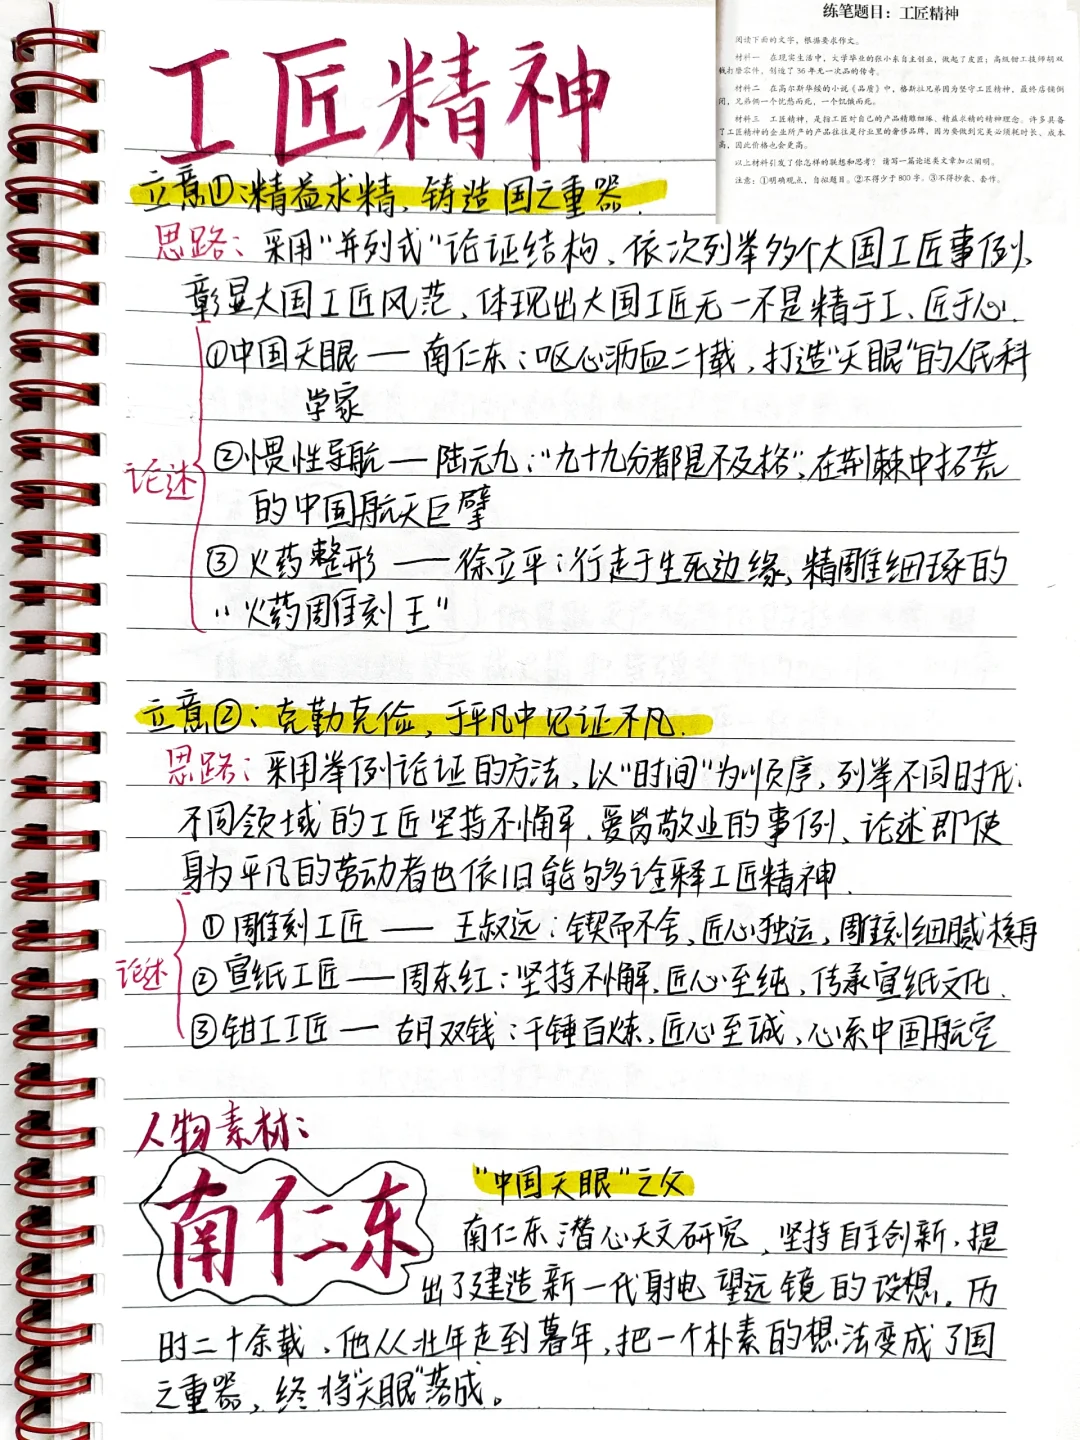 练笔题目：工匠精神
阅读下面的文字，根据要求作文。
材料一　在现实生活中，大学毕业的张小东自主创业，做起了皮匠；高级钳工技师胡双
钱打磨零件，创造了36年无一次品的传奇。
材料二　在高尔斯华绥的小说《品质》中，格斯拉兄弟因为坚守工匠精神，最终店铺倒
闭，兄弟俩一个忧愁而死，一个饥饿而死。
材料三　工匠精神，是指工匠对自己的产品精雕细琢、精益求精的精神理念。许多具备
了工匠精神的企业所产的产品往往是行业里的奢侈品牌，因为要做到完美必须耗时长、成本
高，因此价格也会更高。
以上材料引发了你怎样的联想和思考？请写一篇论述类文章加以阐明。
注意：①明确观点，自拟题目。②不得少于800字。③不得抄袭、套作。
工匠精神
立意①：精益求精、铸造国之重器．
思路：采用“并列式”论证结构、依次列举多个大国工匠事例、
彰显大国工匠风范、体现出大国工匠无一不是精于工、匠于心．
论述
①中国天眼——南仁东：呕心沥血二十载，打造“天眼”的人民科
学家
②惯性导航——陆元九：“九十九分都是不及格”，在荆棘中拓荒
的中国航天巨擘
③火药整形——徐立平：行走于生死边缘，精雕细琢的
“火药雕刻王”
立意②：克勤克俭，于平凡中见证不凡．
思路：采用举例论证的方法，以“时间”为顺序，列举不同时代、
不同领域的工匠坚持不懈、爱岗敬业的事例、论述即使
身为平凡的劳动者也依旧能够诠释工匠精神．
论述
①雕刻工匠——王叔远：锲而不舍，匠心独运，雕刻细腻核舟
②宣纸工匠——周东红：坚持不懈，匠心至纯，传承宣纸文化．
③钳工工匠——胡双钱：千锤百炼，匠心至诚，心系中国航空
人物素材：
南仁东
“中国天眼”之父
南仁东潜心天文研究，坚持自主创新，提
出了建造新一代射电望远镜的设想。历
时二十余载，他从壮年走到暮年，把一个朴素的想法变成了国
之重器，终将“天眼”落成。